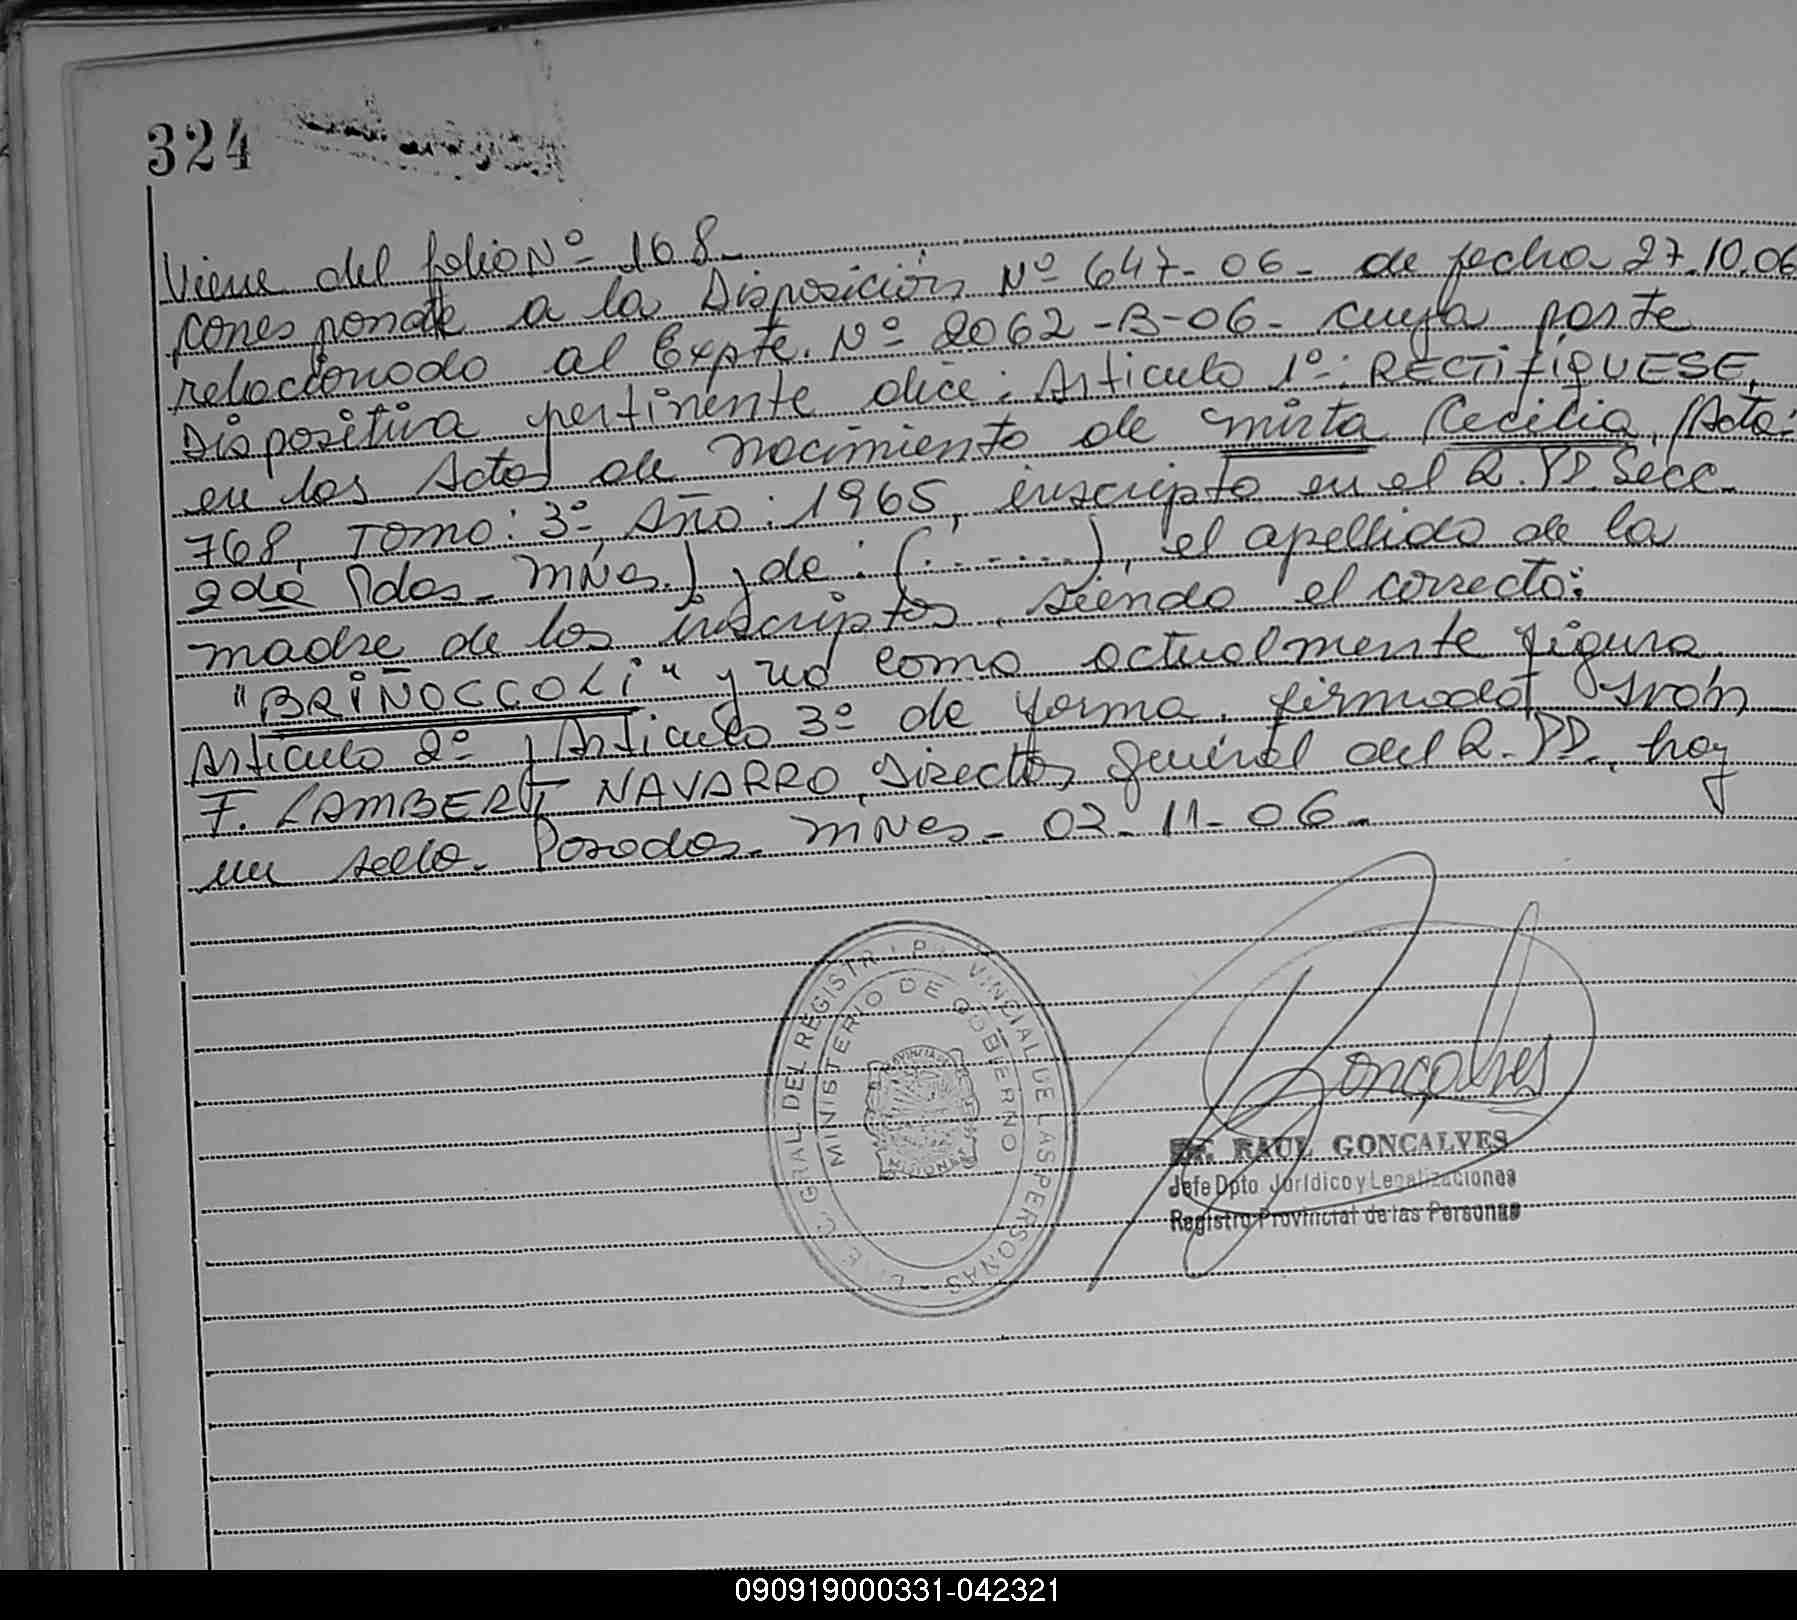 324
Viene del folio Nº 168.-
corresponde a la Disposición Nº 647-06- de fecha 27.10.06
relacionado al Expte. Nº 2062-B-06- cuya parte
Dispositiva pertinente dice: Articulo 1º: RECTIFIQUESE,
en las Actas de nacimiento de Mirta Cecilia, (Acta:
768, Tomo: 3º, Año: 1965, inscripta en el R.PP. Secc.
2da Pdas. Mnes.) y de: (........), el apellido de la
madre de los inscriptos, siendo el correcto:
"BRIÑOCCOLI" y no como actualmente figura.
Articulo 2º y Articulo 3º de forma. firmado: Iván
F. LAMBERT NAVARRO, Director General del R.PP., hay
un sello. Posadas. Mnes- 02-11-06.-
MINISTERIO DE GOBIERNO
GRAL. DEL REGISTR PR VINCIAL DE LAS PERSONAS
PROVINCIA DE MISIONES
Goncalves
Dr. RAUL GONCALVES
Jefe Dpto Jurídico y Legalizaciones
Registro Provincial de las Personas
090919000331-042321